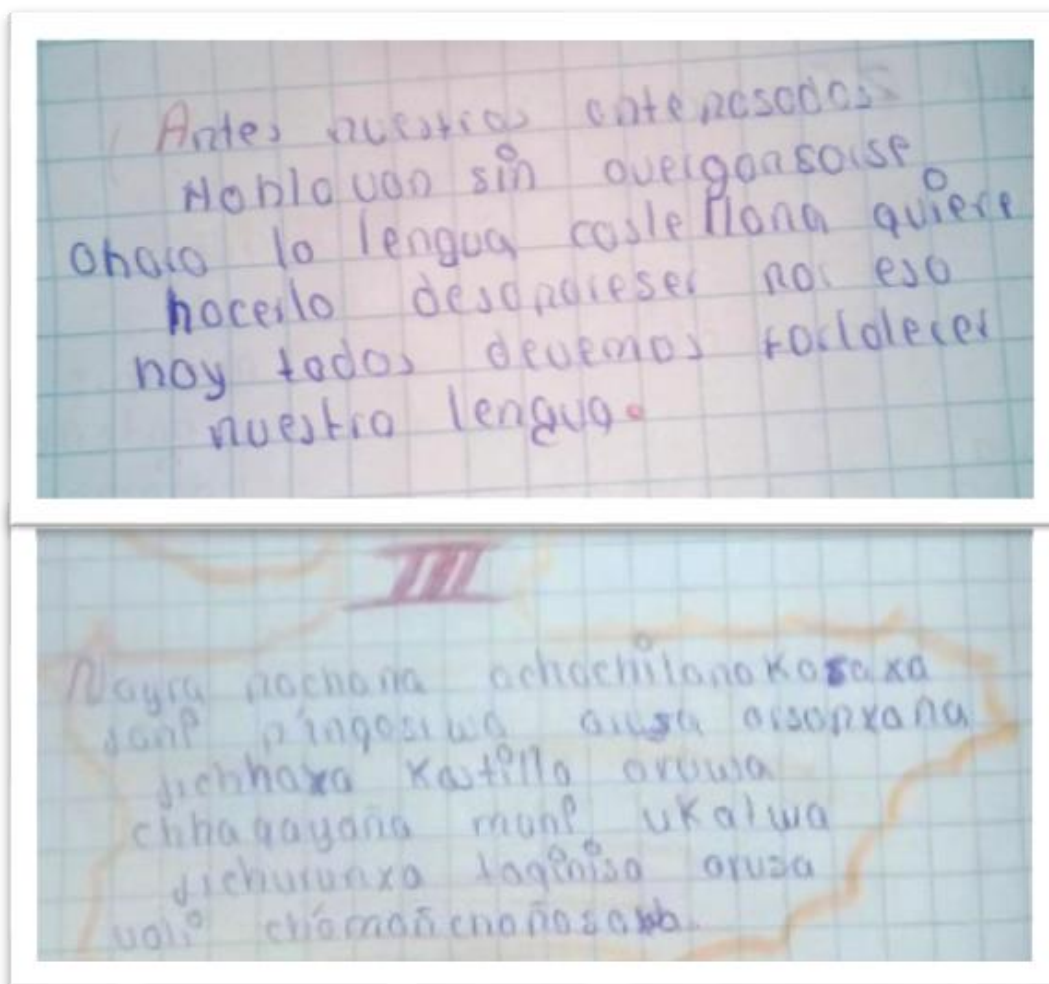 Antes nuestros antepasados
Hablavan sin avergonsarse
ahara la lengua castellana quiere
hacerlo desapareser por eso
hoy todos devemos fortalecer
nuestra lengua.
III
Nayra pachana achachilanakasaxa
jani pingasiwa arusa arsapxana
jichhaxa kastilla aruwa
chhaqayaña muni ukatwa
jichurunxa taqinisa arusa
wali